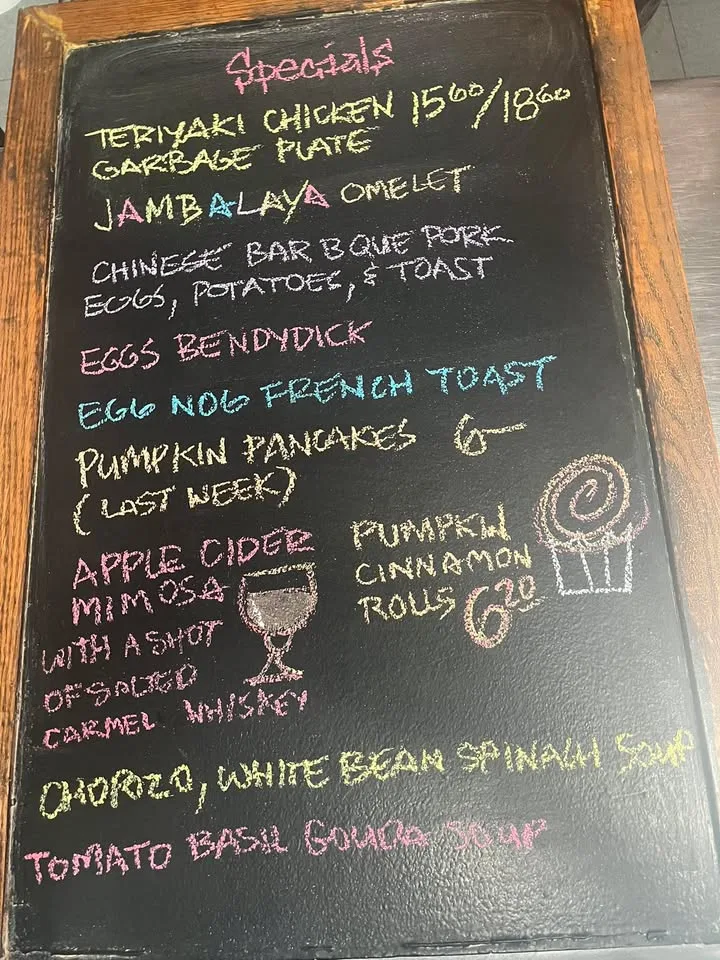 Specials
TERIYAKI CHICKEN 15⁶⁰/18⁶⁰
GARBAGE PLATE
JAMBALAYA OMELET
CHINESE BAR B QUE PORK
EGGS, POTATOES, & TOAST
EGGS BENDYDICK
EGG NOG FRENCH TOAST
PUMPKIN PANCAKES 6—
(LAST WEEK)
APPLE CIDER
MIMOSA
WITH A SHOT
OF SALTED
CARMEL WHISKEY
PUMPKIN
CINNAMON
ROLLS 6²⁰
CHOROZO, WHITE BEAN SPINACH SOUP
TOMATO BASIL GOUDA SOUP